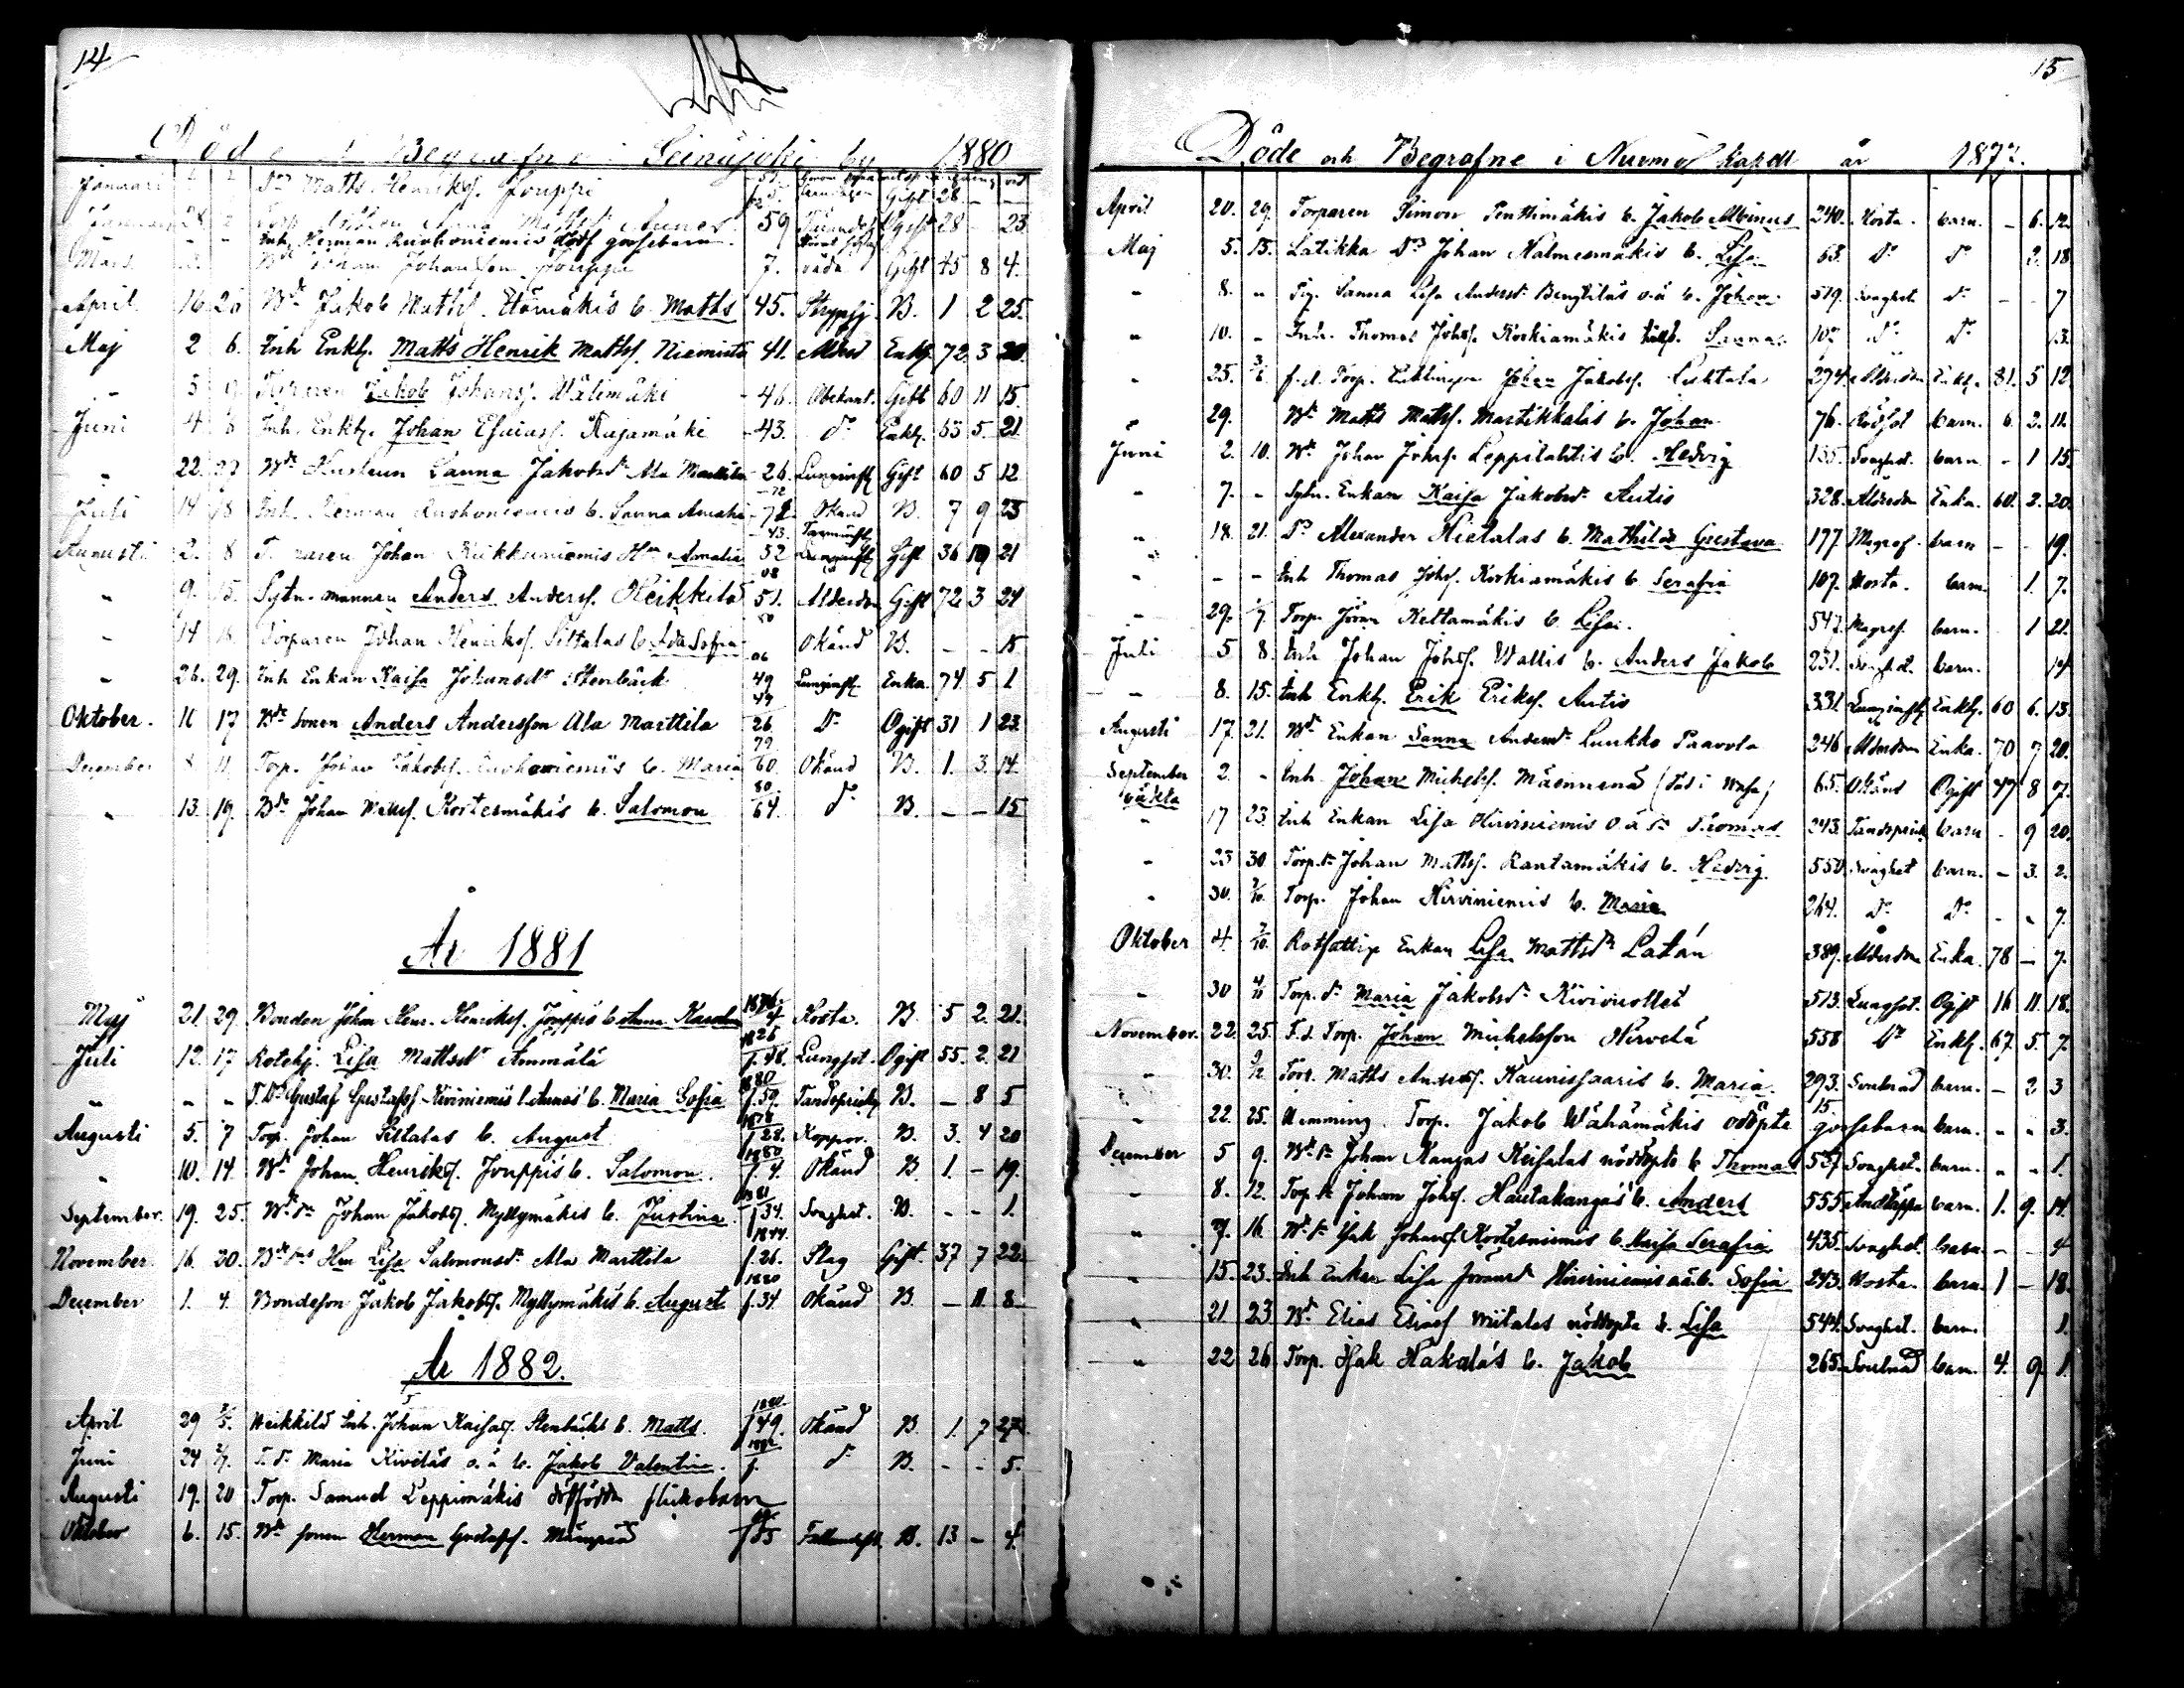 14
Döde och Begrafne i Seinäjoki by 1880
Januari Matts Henrikss. Jouppi 5. Gift 28 - -
Januari 28 59 Ogift 28 - 23
Inh. Herman Ruohoniemis dödf. gossebarn
Mars Johan Johansson Jouppi 7. våda Gift 45 8 4.
April 16 20 Bd. Jakob Mattss. Etömäkis b. Matts 45. Strypsj. B. 1 2 25.
Maj 2 6. Inh Enkl. Matts Henrik Mattss. Niemistö 41. Ålderd Enkl. 72. 3 20.
" 5 9 Torparen Jakob Johanss. Wälimäki 46. Obekant. Gift 60 11 15
Juni 4 6 Inh. Enkl. Johan Esaiass. Rajamäki 43. do Enkl. 63 5. 21
" 22. 27 Bd. Hustrun Sanna Jakobsdr Ala Marttila 26. Lunginfl. Gift 60 5 12
Juli 14 18 Inh. Herman Ruohoniemis b. Sanna Amalia 72 Okänd B. 7 9 23
Augusti 2. 8 Torparen Johan Kiikkuniemis Hu Amalia 52 Gift 36 10 21
" 9. 15. Sytn. mannen Anders Anderss. Heikkilä 51. Ålderdom Gift 72 3 24
" 14 Torparen Johan Henrikss. Siltalas b. Ada Sofia Okänd B. - - 15
" 26. 29. Inh Enkan Kaisa Johansdr Stenbäck 49 Lunginfl. Enka. 74 5 1
Oktober. 10 17 Bd. Sonen Anders Andersson Ala Marttila 26 do Ogift 31 1 23.
December 8 11 Torp. Johan Jakobss. Ruohoniemis b. Maria 60. Okänd B. 1. 3. 14.
" 13. 19. Bd. Johan Mattss. Kostesmäkis b. Salomon 64. do B. - - 15
År 1881
Maj 21. 29. Bonden Johan Henr. Henrikss. Jouppis b. Anna Karolina 4 Rosta. B. 5 2. 21.
Juli 12. 17 Rotehj. Lisa Mattsdr Ammälä f. 48. Lungsot. Ogift 55. 2. 21
" " " T. Dr Gustaf Gustafss. Kiviniemis l. Annas b. Maria Sofia f. 59. Tandsprickn. B. - 8 5
Augusti 5. 7 Torp. Johan Siltalas b. August f. 28. Koppor. B. 3. 4 20
" 10. 14. Bd. Johan Henrikss. Jouppis b. Salomon f. 4. Okänd B 1. - 19.
September. 19. 25. Bd. Sn Johan Jakobss. Myllymäkis b. Justina f. 34. Svaghet. B. - - 1.
November. 16. 20. Bd. Sns Hu Lisa Salomonsdr Ala Marttila f. 26. Slag Gift. 37 7 22
December 1. 4. Bondeson Jakob Jakobss. Myllymäkis b. August f. 34. Okänd B. - 11. 8
År 1882.
April 29 3/5. Heikkilä Inh. Johan Kaisas. Stenbäcks b. Matts. f 49. Okänd B. 1. 7 27
Juni 24 2/7. T. dr Maria Kivelas o. ä b. Jakob Valentin. f. do B. - - 5.
Augusti 19. 20 Torp. Samuel Leppimäkis dödfödda flickobarn
Oktober 6. 15. Bd. Sonen Herman Gustafss. Mänpää f 85 Fallandesot. B. 13 - 4.
15
Döde och Begrafne i Nurmo Kapell år 1877.
April 20. 29. Torparen Simon Penttimäkis b. Jakob Albinus 240. Hosta. barn. - 6. 12.
Maj 5. 13. Latikka Dr Johan Halmesmäkis b. Lisa 63. do do 2. 18
" 8. " Pig. Sanna Lisa Andersdr Bengtiläs o.ä b. Johan 519. Svaghet do - - 7
" 10. - Inh. Thomas Johss. Korkiamäkis b. Sanna 107 do do 13.
" 25. 3/6. f.d. Torp. Enklingen Johan Jakobss. Luhtala 274. Ålderdom Enkl. 81. 5 12.
" 29. Bd. Matts Mattss. Martikkalas b. Johan 76. Rödsot barn. 6. 2. 11.
Juni 2. 10. Bd. Johan Johss. Leppilahtis b. Hedvig 135. Svaghet. barn - 1 15.
" 7. - Sytn. Enkan Kaisa Jakobsdr Autio 328. Ålderdom Enka. 60. 2. 20.
" 18. 21. Do Alexander Hietalas b. Mathilda Gustava 177 Magref. barn - - 19.
" - - Inh Thomas Johss. Korkiamäkis b. Serafia 107. Hosta. barn. 1. 7.
" 29. 1/7. Torp. Johan Keltamäkis b. Lisa. 547. Magref. barn. 1 21.
Juli 5 8. Inh Johan Johss. Wallis b. Anders Jakob 231. Svaghet. barn. 14
" 8. 15. Inh Enkl. Erik Erikss. Autio 331. Lunginfl. Enkl. 60 6. 13.
Augusti 17. 21. Bd. Enkan Sanna Andersdr Luukko Paavola 246 Ålderdom Enka. 70 7 20.
September 2. - Inh. Johan Michelss. Mäenmenä (död i Wasa) 65. Okänd Ogift 47 8 7.
häkte
" 17 23. Inh Enkan Lisa Hirviniemis o. ä. Sn Thomas 243. Tandsprick barn - 9 20.
" 23 30 Torp. Sn Johan Mattss. Rantamäkis b. Hedvig. 550. Svaghet barn. - 3. 2.
" 30. 7/10. Torp. Johan Hirviniemis b. Maria 264. do do - " 7.
Oktober 4. 7/10. Rotfattige Enkan Lisa Mattsdr Latán 389. Ålderdom Enka. 78 - 7.
" 30 4/11 Torp. dr Maria Jakobsdr Kivivuollet 513. Lungsot. Ogift 16 11. 18.
November. 22. 25. F.d. Torp. Johan Michelsson Hirvelä 558 do Enkl. 67. 5. 7.
" 30. 2/12. Torp. Matts Anderss. Kaunissaaris b. Maria 293. barn. - 2 3
" 22. 25. Hemming Torp. Jakob Wähämäkis odöpte gossebarn 15 barn. " " 3.
December 5 9. Bd. Sn Johan Kangas Keisalas nöddöpte b Thomas 537 Svaghet. barn. " " 1.
" 8. 12. Torp. Sn Johan Johss. Hautakangas b. Anders 555 Andtäppa barn. 1. 9. 14.
" 9. 16. Bd. Sn Isak Johanss. Kostesniemis b. Kaisa Serafia 435. Svaghet. barn - - 4
" 15. 23. Inh Enkan Lisa Hirviniemis o ä b. Sofia 243. Hosta. barn. 1 - 18.
" 21 23 Bd. Elias Eliass Wiitalas nöddöpta b. Lisa 544. Svaghet. barn. 1.
" 22 26. Torp. Isak Hakalas b. Jakob 265. barn. 4. 9. 1.